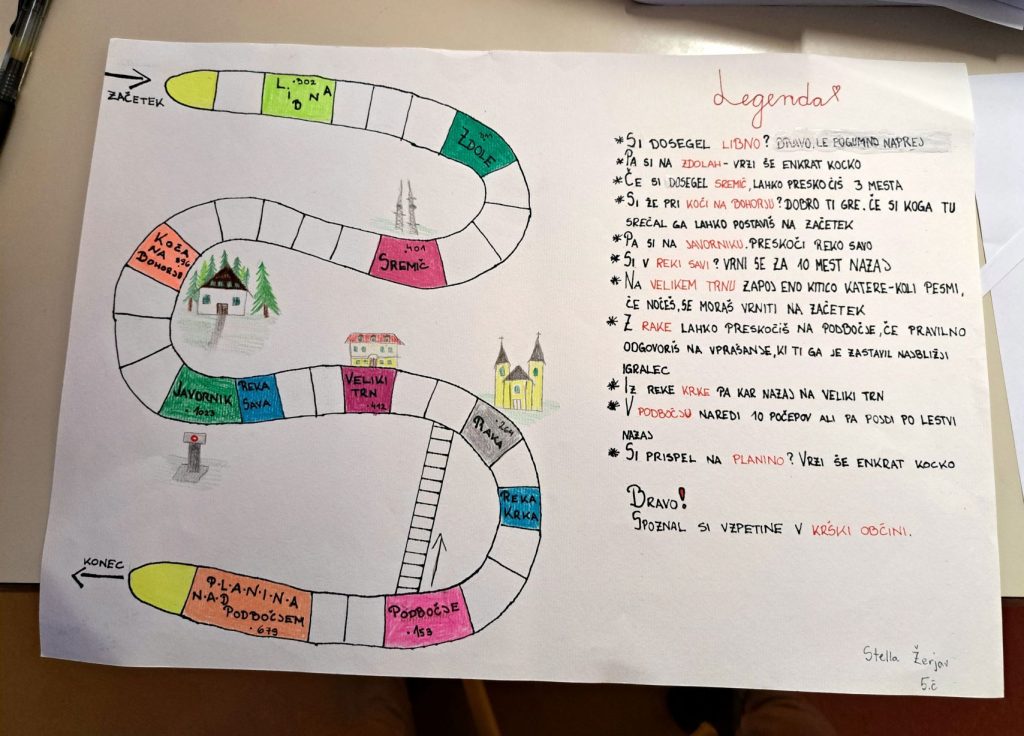 ZAČETEK
LIBNA
·302
ZDOLE
SREMIČ
·401
KOČA
NA
BOHORJU
896
JAVORNIK
·1023
REKA
SAVA
VELIKI
TRN
·412
RAKA
·264
REKA
KRKA
PODBOČJE
·153
P·L·A·N·I·N·A
N·A·D
PODBOČJEM
·679
KONEC
Legenda
* SI DOSEGEL LIBNO? BRAVO, LE POGUMNO NAPREJ
* PA SI NA ZDOLAH - VRZI ŠE ENKRAT KOCKO
* ČE SI DOSEGEL SREMIČ, LAHKO PRESKOČIŠ 3 MESTA
* SI ŽE PRI KOČI NA BOHORJU? DOBRO TI GRE. ČE SI KOGA TU
SREČAL GA LAHKO POSTAVIŠ NA ZAČETEK
* PA SI NA JAVORNIKU. PRESKOČI REKO SAVO
* SI V REKI SAVI? VRNI SE ZA 10 MEST NAZAJ
* NA VELIKEM TRNU ZAPOJ ENO KITICO KATERE-KOLI PESMI,
ČE NOČEŠ, SE MORAŠ VRNITI NA ZAČETEK
* Z RAKE LAHKO PRESKOČIŠ NA PODBOČJE, ČE PRAVILNO
ODGOVORIŠ NA VPRAŠANJE, KI TI GA JE ZASTAVIL NAJBLIŽJI
IGRALEC
* IZ REKE KRKE PA KAR NAZAJ NA VELIKI TRN
* V PODBOČJU NAREDI 10 POČEPOV ALI PA POJDI PO LESTVI
NAZAJ
* SI PRISPEL NA PLANINO? VRZI ŠE ENKRAT KOCKO
BRAVO!
SPOZNAL SI VZPETINE V KRŠKI OBČINI.
Stella Žerjav
5.č